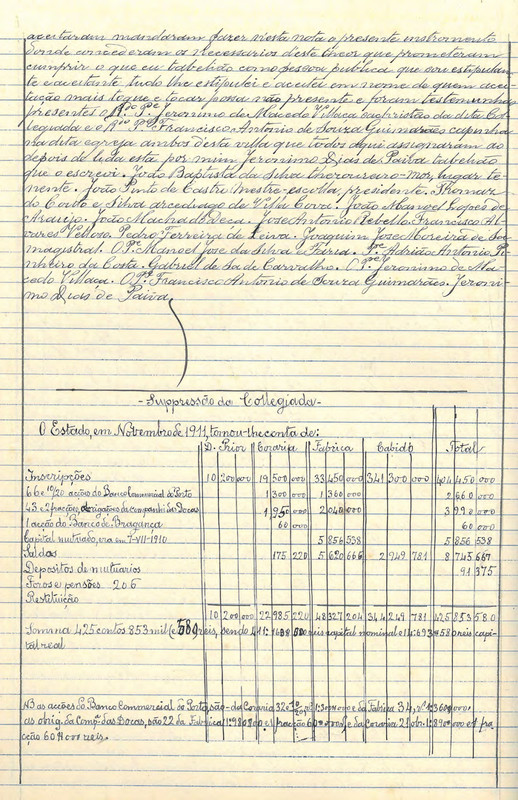 acceitaram mandaram fazer nesta nota o presente instromento
donde concederam os necessarios deste theor que prometeram
cumprir o que eu tabelião como pessoa publica que sou estipulan
te e aceitante tudo lhe estipulei e aceitei em nome de quem acei
tação mais toque e tocar possa não presente e foram testemunhas
presentes o R.do P.e Jeronimo de Macedo Villaça da dita Col
legiada e o R.do P.e Francisco Antonio de Souza Guimarães
na dita egreja ambos desta villa que todos aqui assignaram ao
depois de lida esta por mim Jeronimo Dias de Paiva tabelião
que o escrevi. João Baptista da Silva thezoureiro-mor, lugar te
nente. João Pinto de Castro mestre-escolla, presidente. Thomaz
do Couto e Silva arcediago de Villa Cova. João Manoel Lopes de
Araujo. João Machado Deça. Jose Antonio Rebello. Francisco Al
vares Velloso. Pedro Ferreira de Leiva. Joaquim Jose Moreira de Sá,
magistral. O P.e Manoel Jose da Silva e Faria. P.e Adrião Antonio Pi
nheiro da Costa. Gabriel de Sá de Carvalho. O P.e Jeronimo de Ma
cedo Villaça. O P.e Francisco Antonio de Souza Guimarães. Jeroni
mo Dias de Paiva
- Suppressão da Collegiada -
O Estado, em Novembro de 1911, tomou-lhe conta de:
D. Prior Coraria Fabrica Cabido Total
Inscripções 10 200 000 19 500 000 33 450 000 341 300 000 404 450 000
66 e 10/20 acções do Banco Commercial do Porto 1 300 000 1 360 000 2 660 000
43 e 2 fracções, obrigações da companhia das Docas 1 950 000 2 040 000 3 990 000
1 acção do Banco de Bragança 60 000 60 000
Capital mutuado, era em 7-VII-1910 5 856 538 5 856 538
Saldos 175 220 5 620 666 2 949 781 8 745 667
Depositos de mutuarios 91 375
Foros e pensões 206
Restituição
10 200 000 22 985 220 48 327 204 344 249 781 425 853 580
Somma 425 contos 853 mil e 580 reis, sendo 411: reis capital nominal e 14:693 580 reis capi-
tal real
NB as acções do Banco Commercial do Porto, são da Coraria 32 e 10/20, n.º 1:300#000 e da Fabrica 34, n.º 1:360#000.
as obrig. da Comp.ª das Docas, são 22 da Fabrica 1:980#00 e 1 fracção 60#000 e da Coraria 21 obr. 1:890#000 e 1 fra
cção 60# reis.